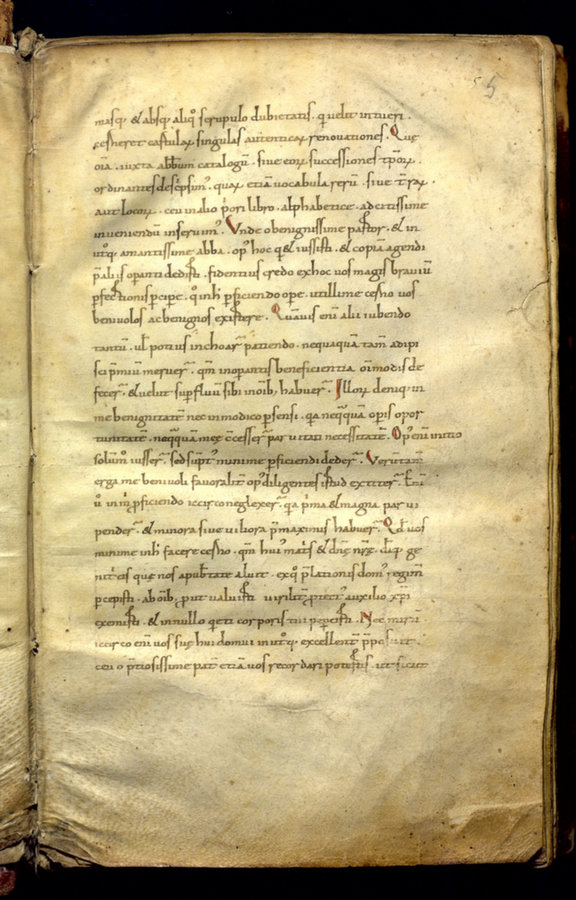 5
masq; & absq; aliq̊ scrupulo dubietatis. q̇ uelit intueri.
cartulaꝝ singulas autenticaꝝ renouationes. Quę
oīa. iuxta abb̄um catalogū. siue eoꝝ successiones tp̄oꝝ.
ordinantes descpsim'. quaꝝ etiā uocabula rerū. siue t̄raꝝ
aut locoꝝ. ceu in alio libro. alphabetice. ad citissime
inueniendū inseruim'. Vnde o benignissime pastor. & in
utq; amantissime abba. op' hoc q & iussisti. & copiā agendi
p̄ aliis opanti dedisti. fidentius credo ex hoc uos magis brauiū
pfectionis pcipe. q̊ in pficiendo ope. utillime uos
beniuolos ac benignos existere. Quāuis enī alii iubendo
tantū. ul' potius inchoar̄ patiendo. nequaquā tam̄ adipi
sci p̄miū meruer̄. qm̄ inopantis beneficientiā oīmodis de
fecer̄. & uelut supfluū sibi in oīb; habuer̄. Illoꝝ deniq; in
me benignitatē nec inmodico psensi. q̄a neq̄quā opis opor
tunitatē. neq̄quā meę par uitati necessitatē. Op' enī initio
solūm' iusser̄. sed supt' minime pficiendi deder̄. Verūtam̄
erga me beniuoli fauoralit̄ op' diligentes istud extiter̄. Enī
pficiendo iccirco neglexer̄. q̄a p̄ma & magna parui
pender̄. & minora siue uiliora p̄ maximis habuer̄. Qd̄ uos
minime facere. qm̄ hui' & dn̄ę nr̄ę. ge
nitcis quę nos a pub̄tate aluit. ex q̊ p̄lationis dom' regim̄
pcepisti. ab oīb; put ualuisti uirilit̄ auxilio xp̄i
exemisti. & in nullo q̇eti corporis tui pepcisti. Nec mirū
iccirco enī uos sue hui domui in utq; excellent̄
ceu o p̄tiosissime pat̄ etiā uos recordari potestis. ut sicut